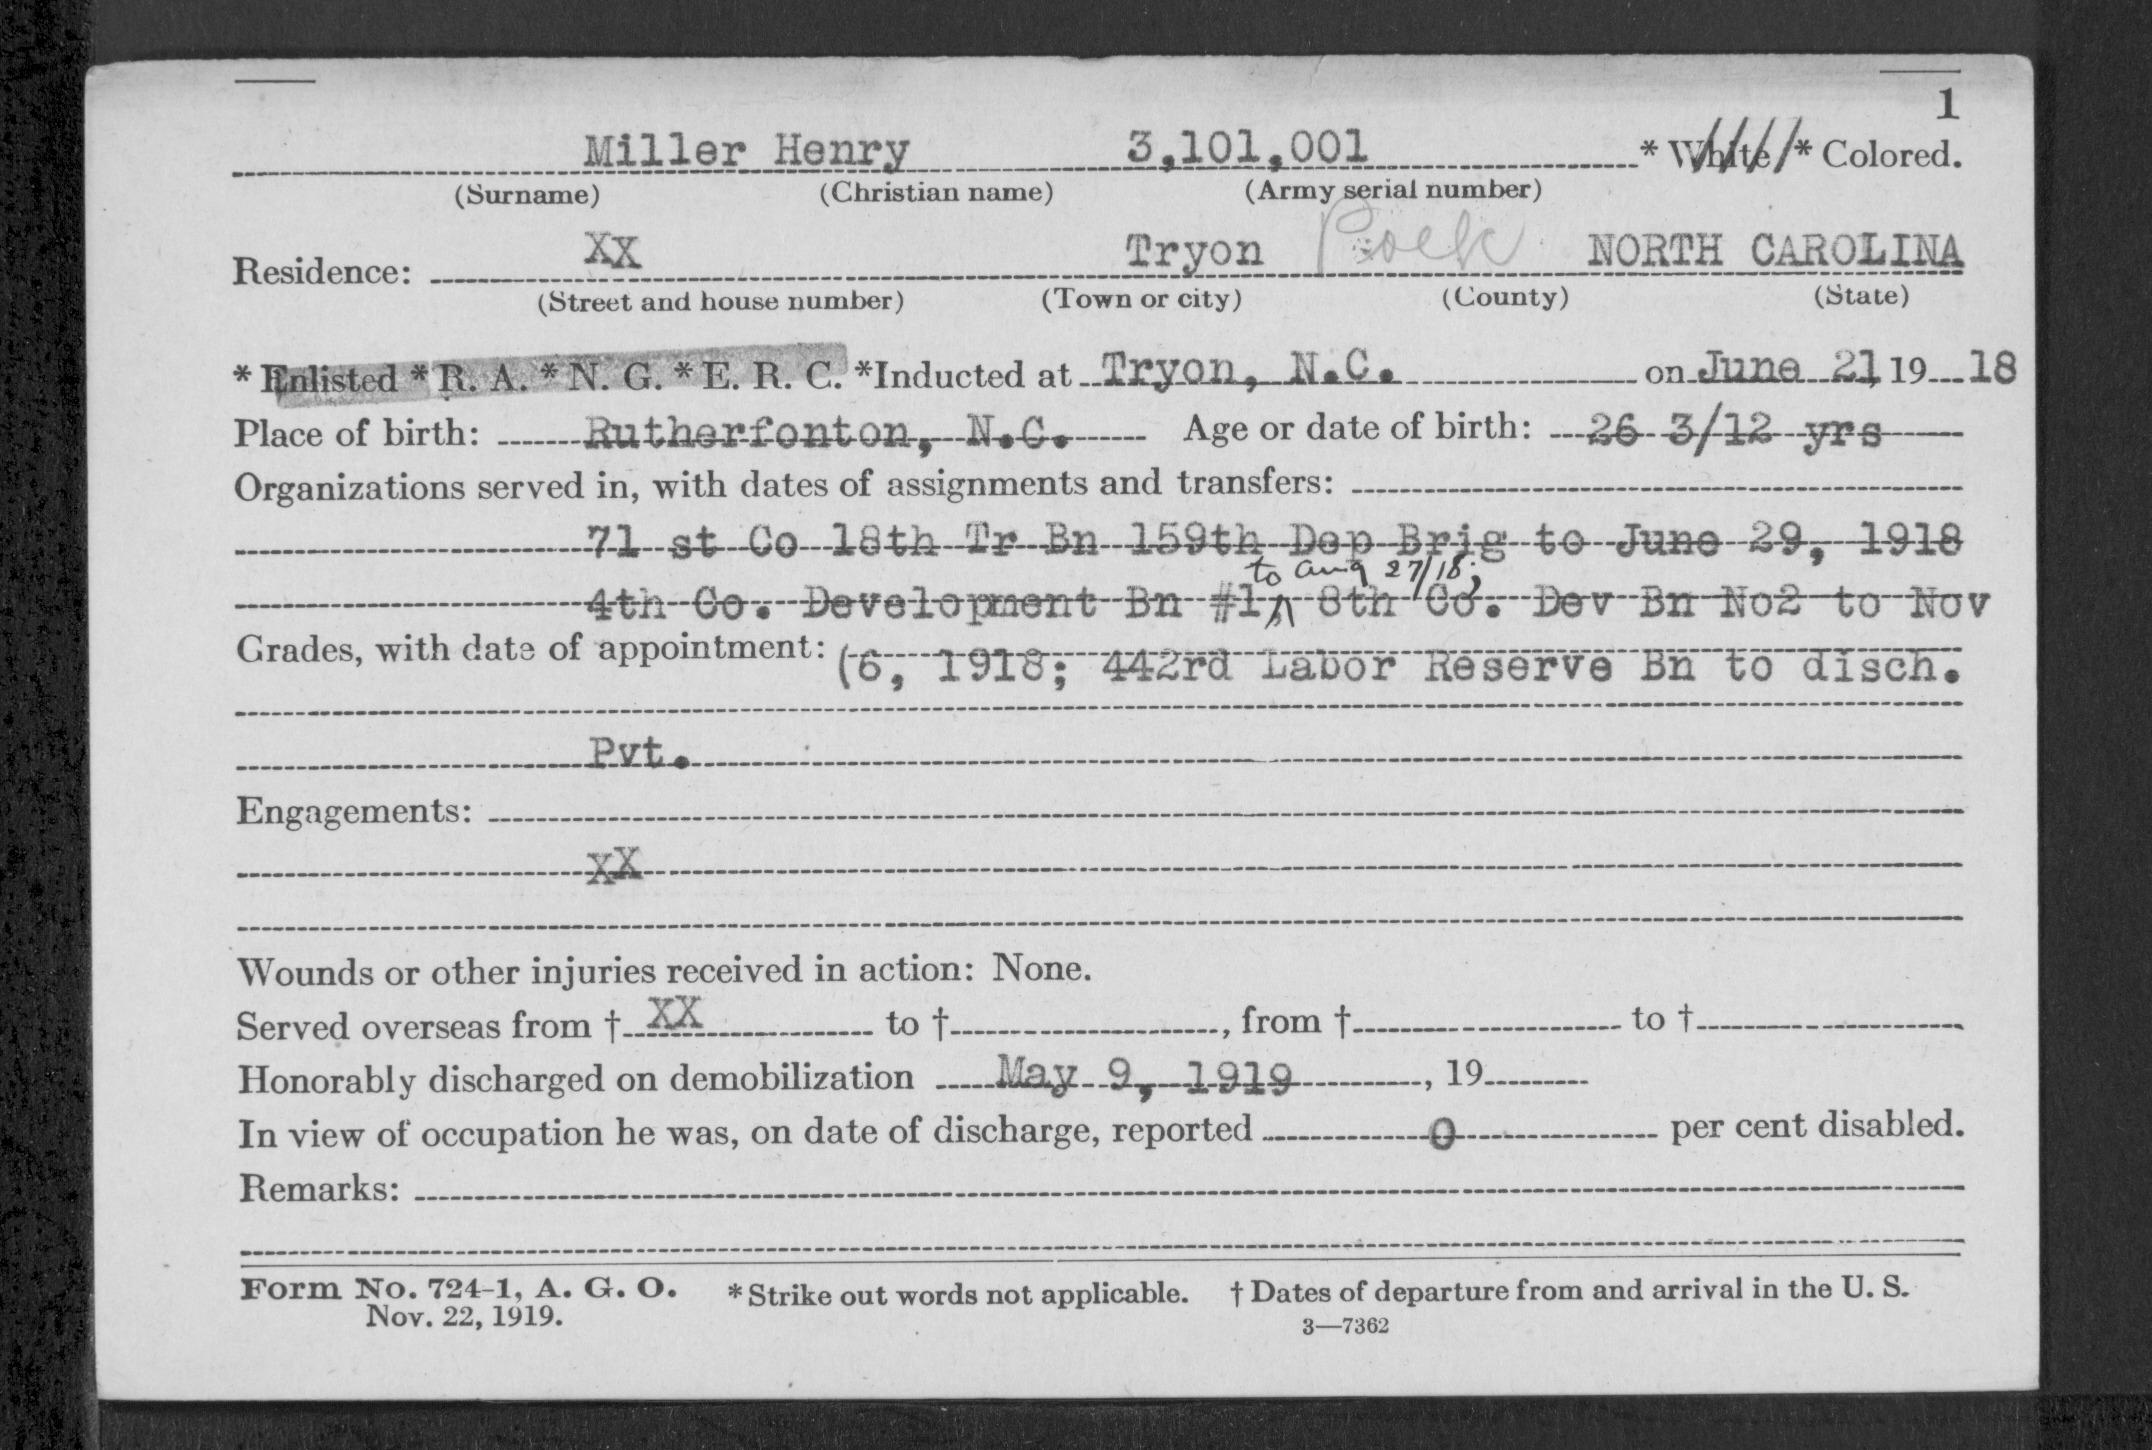 1
Miller Henry 3,101,001 * White * Colored.
(Surname) (Christian name) (Army serial number)
Residence: XX Tryon Polk NORTH CAROLINA
(Street and house number) (Town or city) (County) (State)
* Enlisted * R. A. * N. G. * E. R. C. *Inducted at Tryon, N.C. on June 21, 19 18
Place of birth: Rutherfonton, N.C. Age or date of birth: 26 3/12 yrs
Organizations served in, with dates of assignments and transfers:
71 st Co 18th Tr Bn 159th Dep Brig to June 29, 1918
to Aug 27/18;
4th Co. Development Bn #1 8th Co. Dev Bn No2 to Nov
Grades, with date of appointment: (6, 1918; 442rd Labor Reserve Bn to disch.
Pvt.
Engagements:
XX
Wounds or other injuries received in action: None.
Served overseas from † XX to † , from † to †
Honorably discharged on demobilization May 9, 1919 , 19
In view of occupation he was, on date of discharge, reported 0 per cent disabled.
Remarks:
Form No. 724-1, A. G. O. * Strike out words not applicable. † Dates of departure from and arrival in the U. S.
Nov. 22, 1919.
3—7362